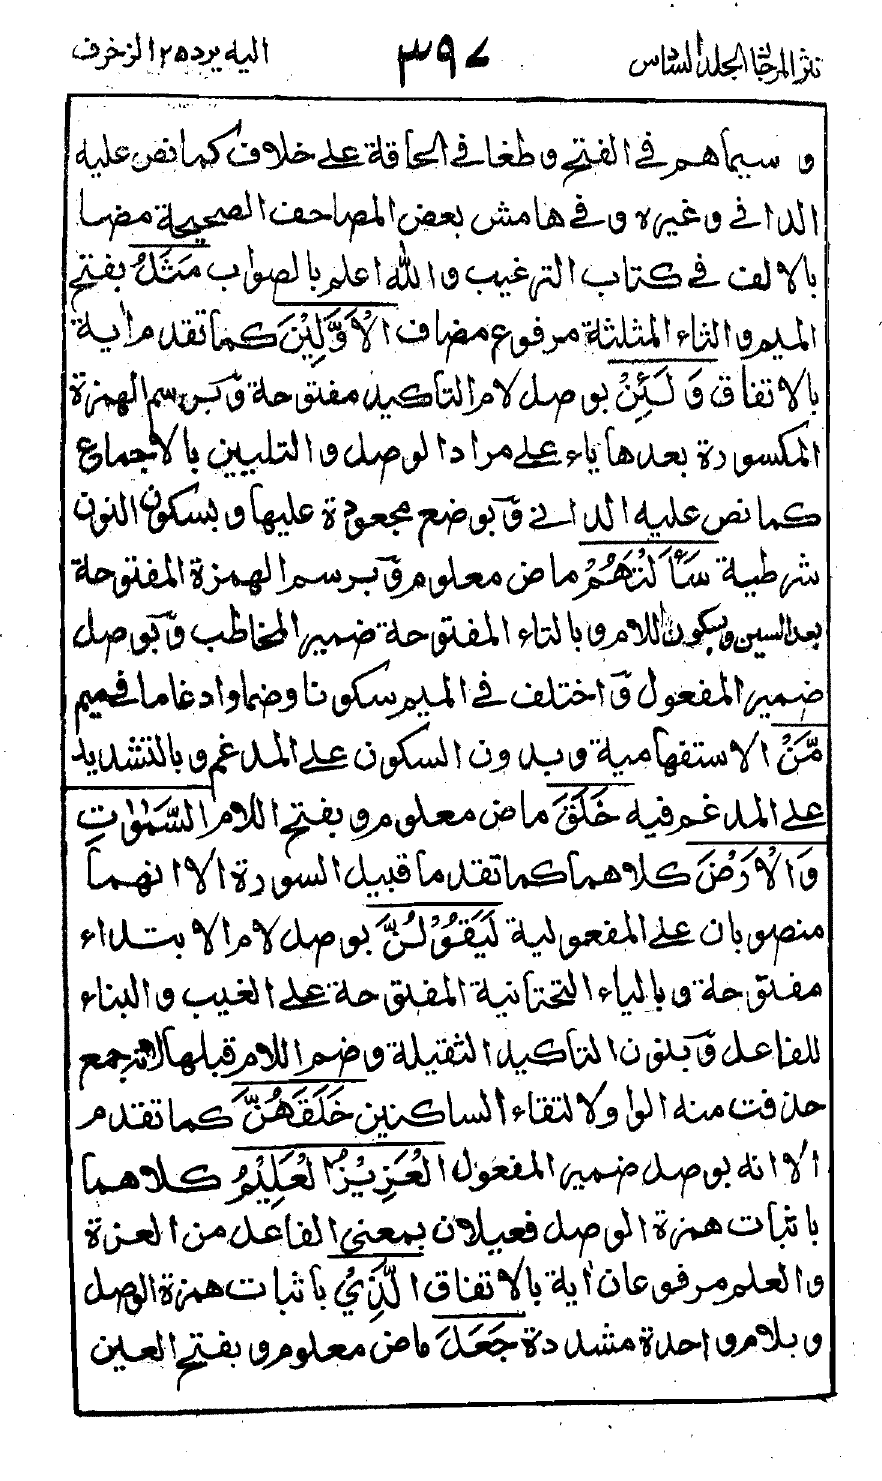 نثر المرجان الجلد السادس ٣٩٧ اليه يرد ٢٥ الزخرف
و سيماهم في الفتح و طغا في الحاقة على خلاف كما نص عليه
الداني و غيره و في هامش بعض المصاحف الصحيحة مضا
بالالف في كتاب الترغيب و الله اعلم بالصواب مَثَلُ بفتح
الميم و الثاء المثلثة مرفوع مضاف الْاَوَّلِيْنَ كما تقدم اٰية
بالاتفاق وَلَئِنْ بوصل لام التاكيد مفتوحة وٓ برسم الهمزة
المكسورة بعدها ياء على مراد الوصل و التليين بالاجماع
كما نص عليه الداني وٓ بوضع مجعودة عليها و بسكون النون
شرطية سَأَلْتَهُمْ ماض معلوم وٓ برسم الهمزة المفتوحة
بعد السين و بسكون اللام و بالتاء المفتوحة ضمير المخاطب وٓ بوصل
ضمير المفعول وٓ اختلف في الميم سكونا و ضما و ادغاما في ميم
مَّنْ الاستفهامية و بدون السكون على المدغم و بالتشديد
على المدغم فيه خَلَقَ ماض معلوم و بفتح اللام السَّمٰوٰتِ
وَالْاَرْضَ كلاهما كما تقدم ما قبيل السورة الا انهما
منصوبان على المفعولية لَيَقُوْلُنَّ بوصل لام الابتداء
مفتوحة و بالياء التحتانية المفتوحة على الغيب و البناء
للفاعل وٓ بنون التاكيد الثقيلة و ضم اللام قبلها لانه جمع
حذفت منه الواو لالتقاء الساكنين خَلَقَهُنَّ كما تقدم
الا انه بوصل ضمير المفعول الْعَزِيْزُ الْعَلِيْمُ كلاهما
باثبات همزة الوصل فعيلان بمعنى الفاعل من العزة
و العلم مرفوعان اٰية بالاتفاق الَّذِيْ باثبات همزة الوصل
و بلام واحدة مشددة جَعَلَ ماض معلوم و بفتح العين